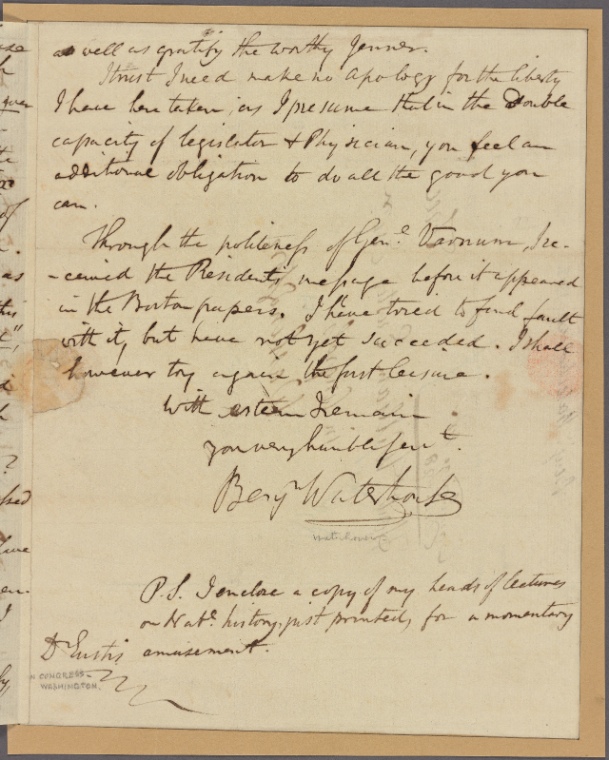 as well as gratify the worthy Jenner.
I trust I need make no apology for the liberty
I have here taken, as I presume that in the Double
capacity of legislator & Physician, you feel an
additional obligation to do all the good you
can.
Through the politeness of Gen.l Varnum, I re-
-ceived the Presidents message before it appeared
in the Boston papers. I have tried to find fault
with it, but have not yet succeeded. I shall
however try again, the first leisure.
With esteem I remain
your very humble serv.t.
Benj.n Waterhouse
Waterhouse
P.S. I enclose a copy of my heads of lectures
on Nat.l history, just printed, for a momentary
Dr Eustis amusement.
IN CONGRESS-
WASHINGTON.